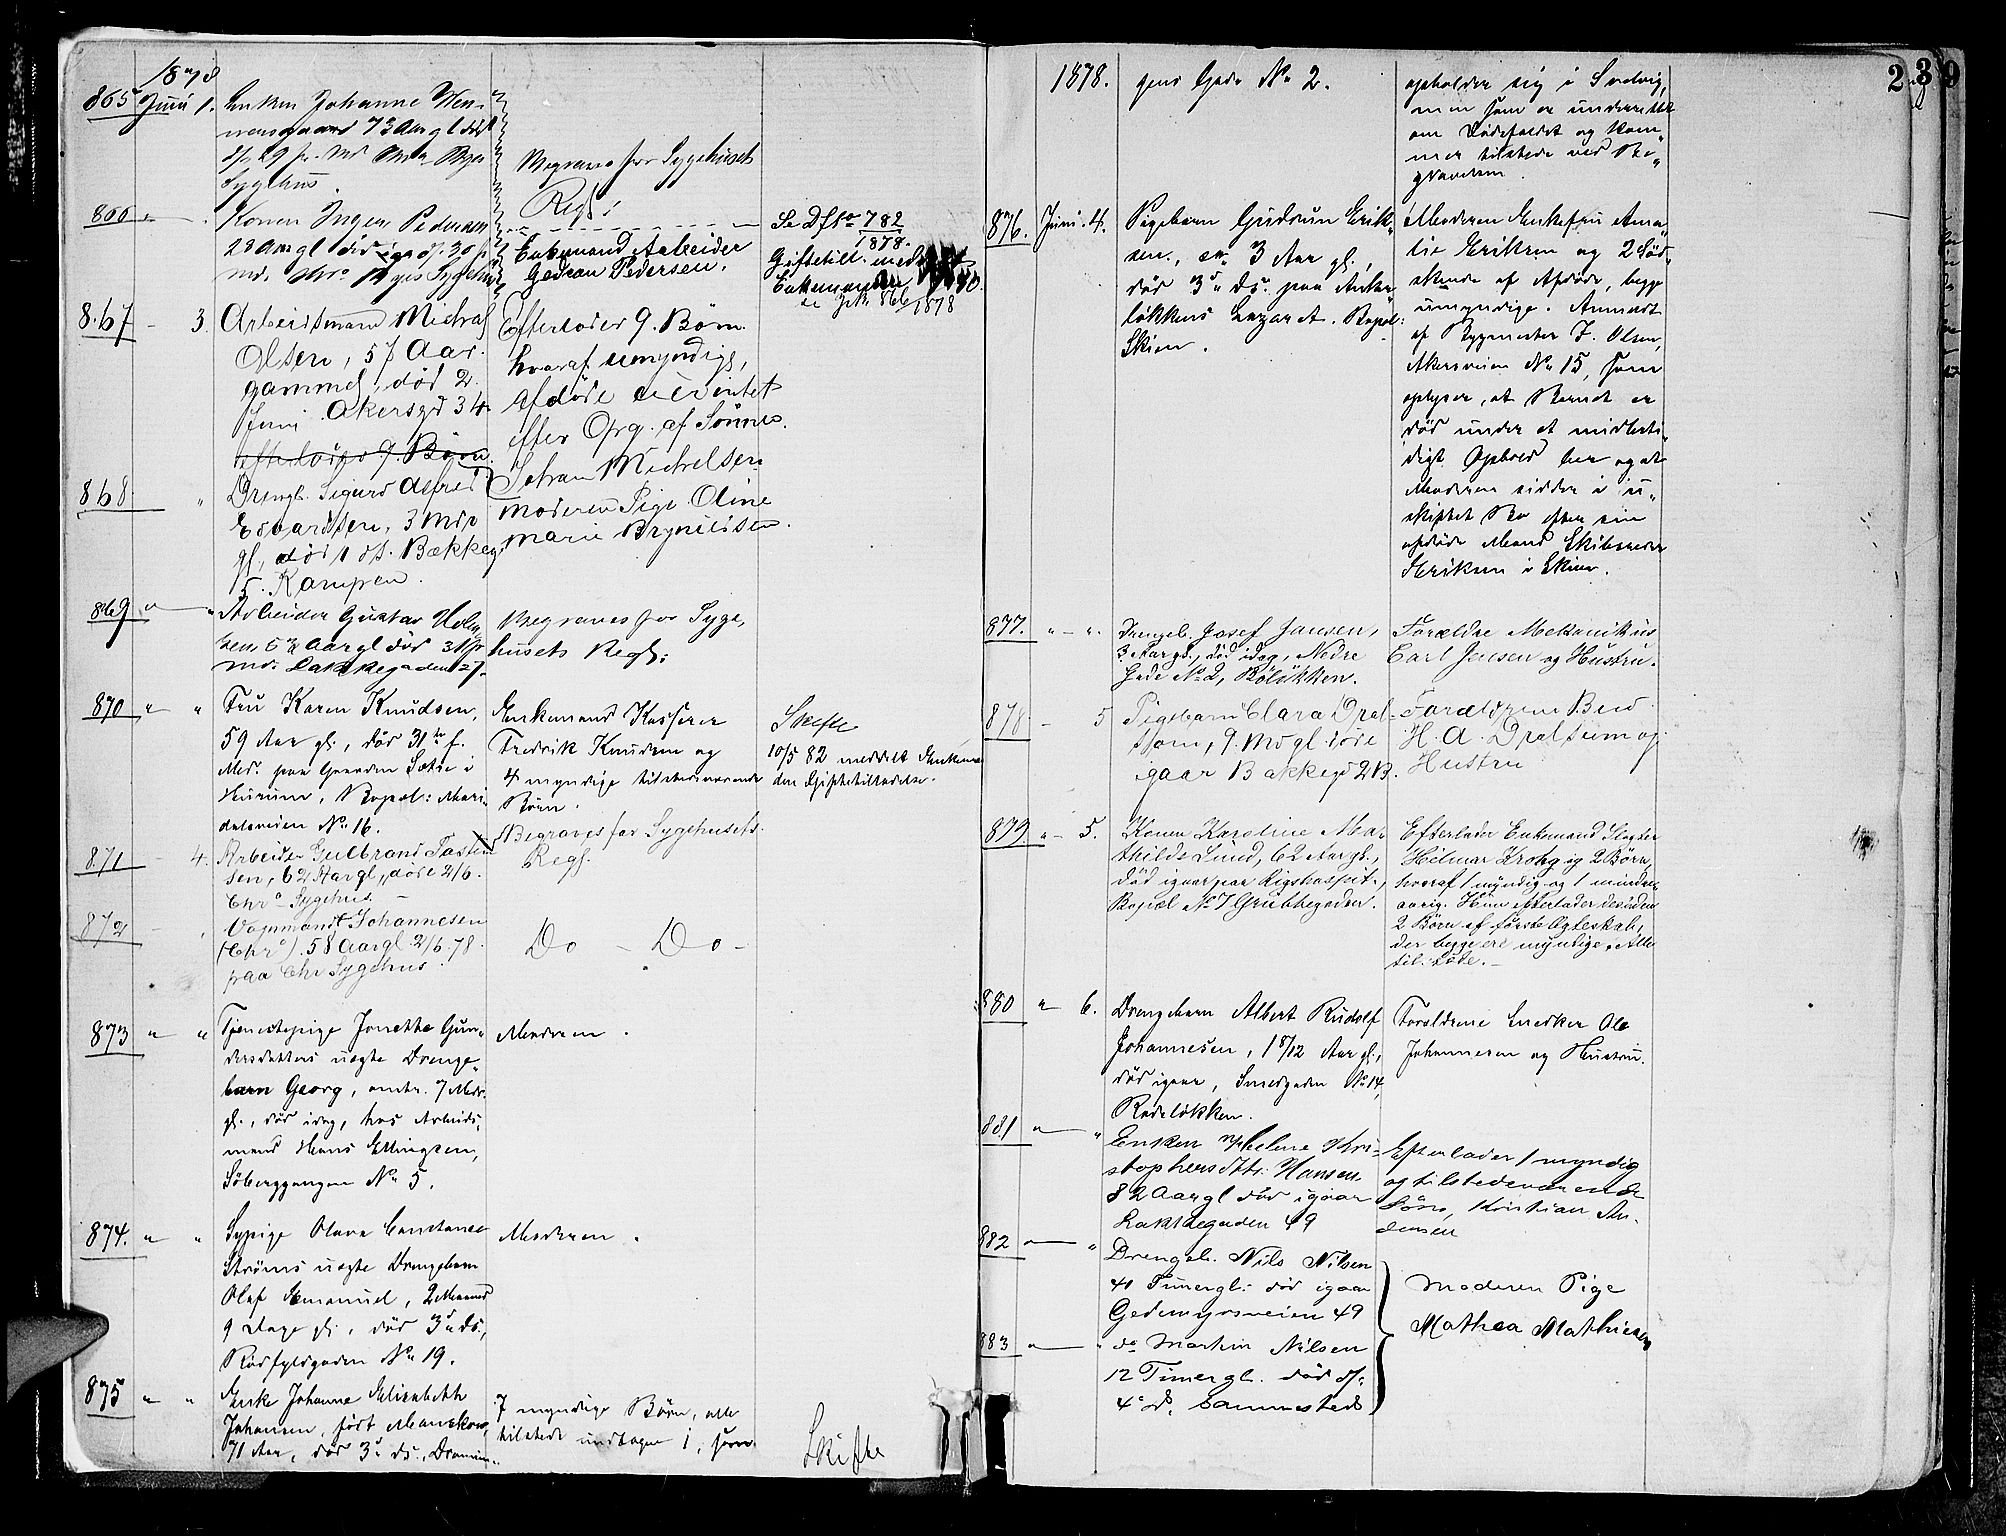 1878
865 Juni 1. Enken Johanne Wen-
nersgaard 73 Aar gl død
d/s 29 f. Md Chra Byes
Sygehus.
Begraves for Sygehusets
Regl:
866 " — . Konen Inger Pedersen
28 Aar gl død igd. 30 f
md. Chra Byes Sygehus
Enkemand Arbeider
Pedersen.
Se Df No 782
1878.
Giftetill. meddelt
Enkemanden
se Jrn 866/1878
8.67 - 3. Arbeidsmand Michal
Olsen, 57 Aar
gammel, død 2.
Juni Akersgd 34
efterlader 9. Børn.
Efterlader 9. Børn
hvoraf umyndige,
afdøde eiede intet
efter Opg. af Sønnen
Johan Michelsen
868 " Drengb. Sigurd Alfred
Edvardsen, 3 Mdr
gl., død 1 ds. Bækkeg.
15. Kampen.
Moderen Pige Oline
Marie Brynildsen.
869 " — " Arbeider Gustav
sen 53 Aar gl død 31 f
md. Lakkegaden 27.
Begraves for Syge-
husets Regl:
870 " " " Fru Karen Knudsen,
59 Aar gl., død 31te f.
Md. paa Gaarden Sætre i
Hurum, Bopæl: Mari-
dalsveien No 16.
Enkemand Kasserer
Fredrik Knudsen og
4 myndige tilstedeværende
Børn.
Skifte
10/5 82 meddelt Enkeman-
den Giftetilladelse.
871 - 4. Arbeider Gulbrand Tosten
sen, 62 Aar gl, døde 2/6.
Chra Sygehus —
Begraves for Sygehusets
Regl.
872 - , Vognmand Johannesen
(Chra). 58 Aar gl 2/6 78.
paa Chr Sygehus.
Do — Do —
873 " " Tjenestepige Jonette Gun-
dersdatters uægte Drenge-
barn Georg, omtr. 7 Mdr.
gl., død idag, hos Arbeids-
mand Hans Ellingsen,
Söberggangen No 5.
Moderen.
874. " " Sypige Olava Constance
Strøms uægte Drengebarn
Olaf Emanuel, 2 Maaned
9 Dage gl., død 3die ds.,
Rødfyldgaden No 19.
Moderen.
875 " " Enke Johanne Elisabeth
Johansen, født
71 Aar, død 3d ds., Drammen-
7 myndige Børn, alle
tilstede undtagen 1, som
Skifte
239
1878. gens Gade No 2.
opholder sig i
men som er underrettet
om Dødsfaldet og kom-
mer tilstede ved Be-
gravelsen.
876. Juni. 4. Pigebarn Gudrun Erik-
sen, ca. 3 Aar gl.,
død 3d ds. paa Anker-
løkkens Lazaret. Bopæl:
Skien.
Moderen Enkefru Ama-
lie Eriksen og 2 Sød-
skende af Afdøde, begge
umyndige. Anmeldt
af Bygmester J. Olsen,
Akersveien No 15, som
oplyser, at Barnet er
død under et midlerti-
digt Ophold her og at
Moderen sidder i u-
skiftet Bo efter sin
afdøde Mand Skibsreder
Eriksen i Skien.
877. " - ". Drengeb. Josef Jansen,
3 Aar gl., død idag, Nedre
Gade No 2, Rölökken.
Forældre Mekanikus
Carl Jensen og Hustru.
878 - 5 Pigebarn Clara Dral-
9 Md gl. døde
igaar Bakkegd 2 B.
Forældrene
H. A. og
Hustru
879 " - 5. Konen Karoline Ma-
thilde Lund, 62 Aar gl.,
død igaar paa Rigshospit.,
Bopæl No 7 Grubbegaden.
Efterlader Enkemand Slagter
Hilmar Krohg og 2 Børn,
hvoraf 1 myndig og 1 mindre-
aarig. Hun efterlader desuden
2 Børn af første Ægteskab,
der begge ere myndige. Alle
tilstede. —
880 " 6. Drengebarn Albert Rudolf
Johannesen, 1 8/12 Aar gl.,
død igaar, Smedgaden No 14,
Rodeløkken.
Forældrene Snedker Ole
Johannesen og Hustru.
881 " — " Enken Helene Kri-
stophersdttr. Hansen
82 Aar gl død igaar
Lakkegaden 49
Efterlader 1 myndig
og tilstedeværende
Søn, Kristian An-
densen
882 " — " Drengeb. Nils Nilsen
41 Timer gl: død igaar
Gedemyrsveien 49
Moderen Pige
Mathea Mathiesen
883 " — " do Martin Nilsen
12 Timer gl. død d/s
4de d. Sammesteds